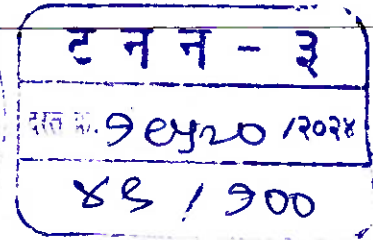 ट न न - ३
दस्त क्र. १७५२० /२०२४
४९ / १००